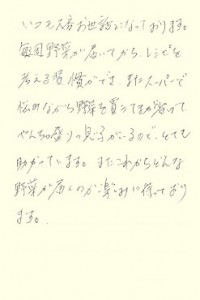 いつも大変お世話になっております。
毎回野菜が届いてから、レシピを
考える習慣ができ、またスーパーで
悩みながら野菜を買う手間が省けて
やんちゃ盛りの息子がいるので、とても
助かっています。またこれからどんな
野菜が届くのか楽しみに待っており
ます。